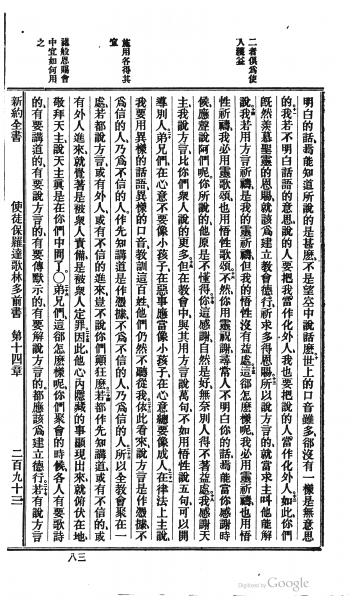 二者俱爲使
人獲益
施用各得其
宜
諸般恩賜會
中宜如何用
之
明白的話、焉能知道所說的是甚麽、不是望空中說話麽、世上的口音雖多、卻沒有一樣是無意思
的、我若不明白話語的意思、說的人要把我當作化外人、我也要把說的人當作化外人、如此你們
旣然羨慕聖靈的恩賜、就該爲建立教會德行、祈求多得恩賜、所以說方言的、就當求主叫他能解
說、我若用方言祈禱、是我的靈祈禱、但我的悟性沒有益處、這卻怎麽樣呢、我必用靈祈禱、也用悟
性祈禱、我必用靈歌頌、也用悟性歌頌、不然、你用靈祝謝、尋常人不明白你的話、焉能當你感謝時
候、應聲說阿們呢、你所說的他原是不懂得、你這感謝自然是好、無奈別人得不著益處、我感謝天
主、我說方言、比你們衆人說的更多、但在教會中、與其用方言說萬句、不如用悟性說五句、可以開
導別人、弟兄們、在心意不要像小孩子、在惡事應當像小孩子、在心意總要像成人、在律法上主說、
我要用異樣的話語、異樣的口音、教訓這百姓、他們仍然不聽從我、依此看來、說方言是作憑據、不
爲信的人、乃爲不信的人、作先知講道是作憑據、不爲不信的人、乃爲信的人、所以全教會聚在一
處、若都說方言、或有外人、或有不信的進來、豈不說你們癲狂麽、若都作先知講道、或有不信的、或
有外人進來、就覺著是被衆人責備、是被衆人定罪、因此他心內隱藏的事顯現出來、就俯伏在地、
敬拜天主、說天主眞是在你們中間了、○弟兄們、這卻怎麽樣呢、你們聚會的時候、各人有要歌詩
的、有要講道的、有要說方言的、有要傳默示的、有要解說方言的、都應該爲建立德行、若有說方言
新約全書　使徒保羅達歌林多前書　第十四章　二百九十三
八三
Digitized by Google